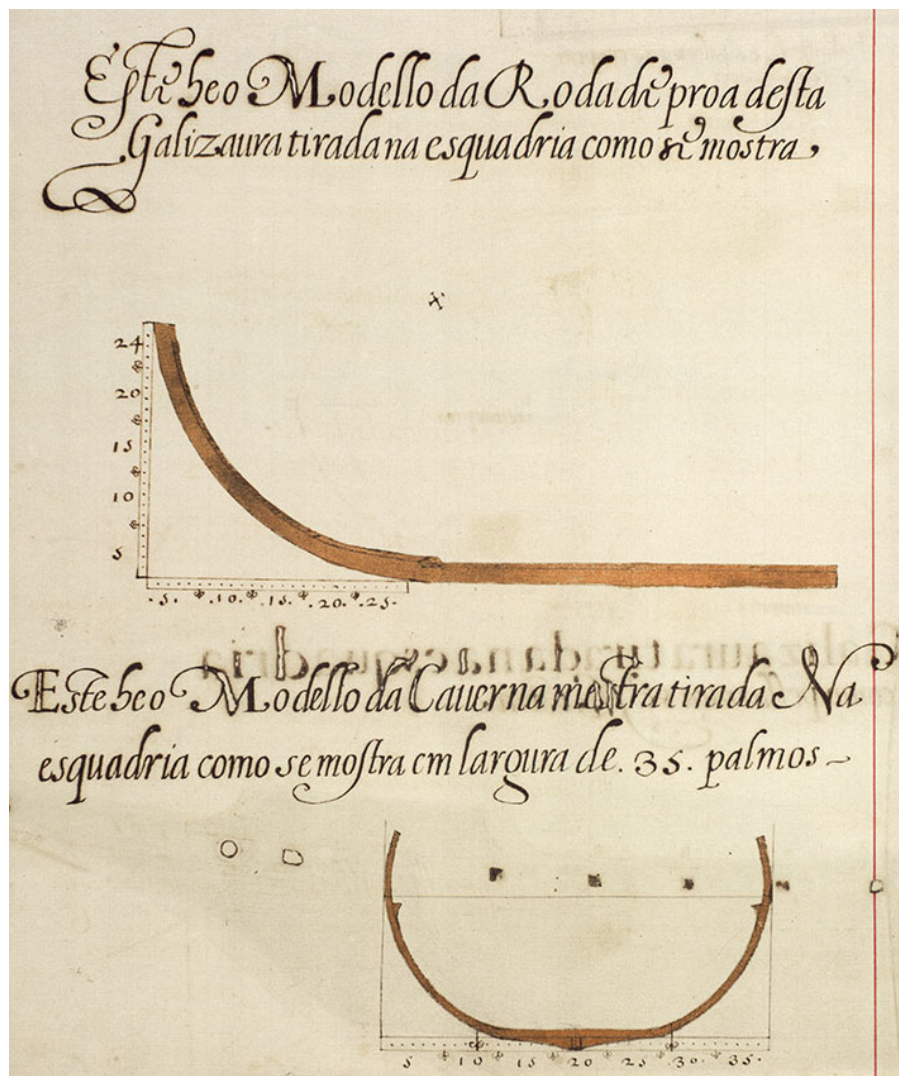 Este he o Modello da Roda de proa desta
Galizaura tirada na esquadria como se mostra,
x
24
20
15
10
5
.5. .10. .15. .20. .25.
Este he o Modello da Cauerna mestra tirada Na
esquadria como se mostra em largura de. 35. palmos~
5 10 15 20 25 30. 35.